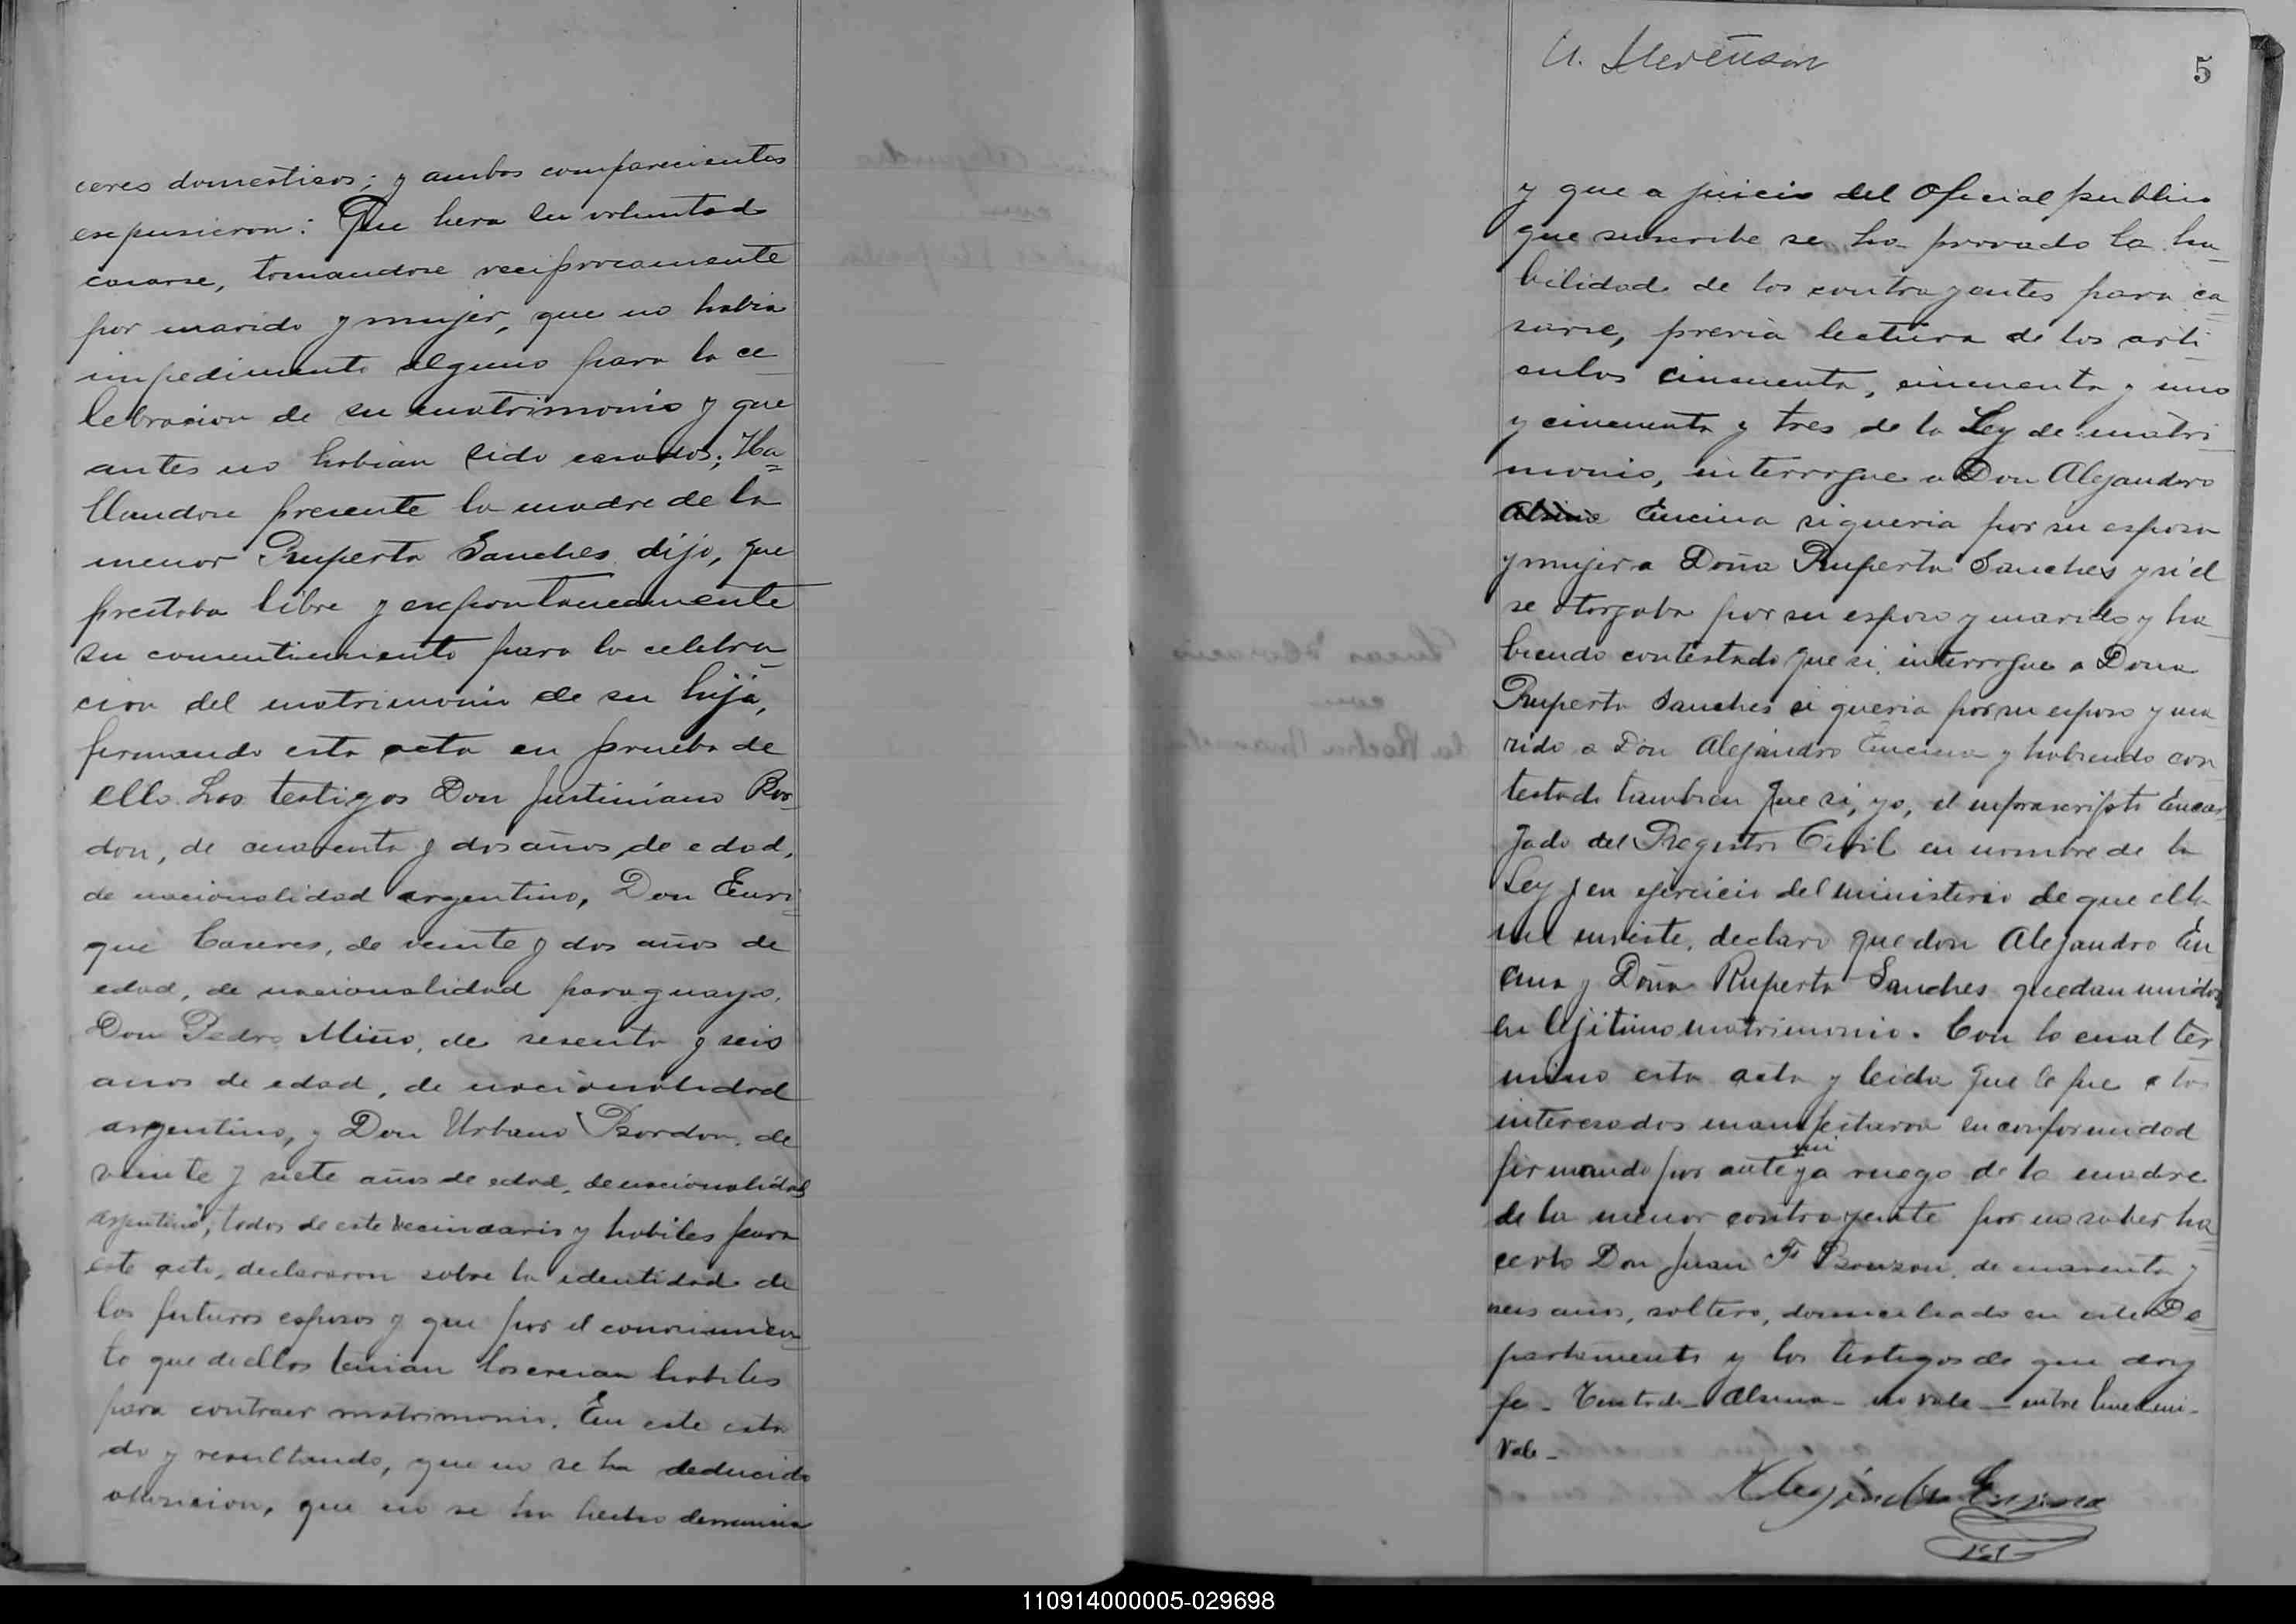 ceres domesticos; y ambos comparecientes
expusieron: Que hera su voluntad
casarse, tomandose reciprocamente
por marido y mujer, que no habia
impedimento alguno para la ce
lebracion de su matrimonio y que
antes no habian sido casados; Ha
llandose presente la madre de la
menor Ruperta Sanches dijo, que
prestaba libre y expontaneamente
su consentimiento para la celebra
cion del matrimonio de su hija,
firmando esta acta en prueba de
ello. Los testigos Don Justiniano Bor
don, de cuarenta y dos años de edad,
de nacionalidad argentino, Don Enri
que Caceres, de veinte y dos años de
edad, de nacionalidad paraguayo,
Don Pedro Miño, de sesenta y seis
anos de edad, de nacionalidad
argentino, y Don Urbano Bordon, de
veinte y siete años de edad, de nacionalidad
argentino, todos de este vecindario y habiles para
este acto, declararon sobre la identidad de
los futuros esposos y que por el conocimien
to que de ellos tenian los creian habiles
para contraer matrimonio. En este esta
do y resultando, que no se ha deducido
oposicion, que no se ha hecho denuncia
U. Stevenson
5
y que a juicio del Oficial publico
que suscribe se ha provado la ha
bilidad de los contrayentes para ca
sarse, previa lectura de los arti
culos cincuenta, cincuenta y uno
y cincuenta y tres de la Ley de matri
monio, interrogue a Don Alejandro
Alsina Encina si queria por su esposa
y mujer a Doña Ruperta Sanches y si él
se otorgaba por su esposo y marido y ha
biendo contestado que si, interrogue a Dona
Ruperta Sanches si queria por su esposo y ma
rido a Don Alejandro Encina y habiendo con
testado tambien que si, yo, el infrascripto Encar
gado del Registro Civil en nombre de la
Ley y en ejercicio del ministerio de que ella
me inviste, declaro que don Alejandro En
cina y Doña Ruperta Sanches quedan unidos
en lejitimo matrimonio. Con lo cual ter
mino esta acta y leida que le fue a los
interesados manifestaron su conformidad
mi
firmando por ante y a ruego de la madre
de la menor contrayente por no saber ha
cerlo Don Juan F. de cuarenta y
seis anos, soltero, domiciliado en este De
partamento y los testigos de que doy
fe - Testado - Alsina - no vale - entre linea mi -
Vale -
Alejandro Encina